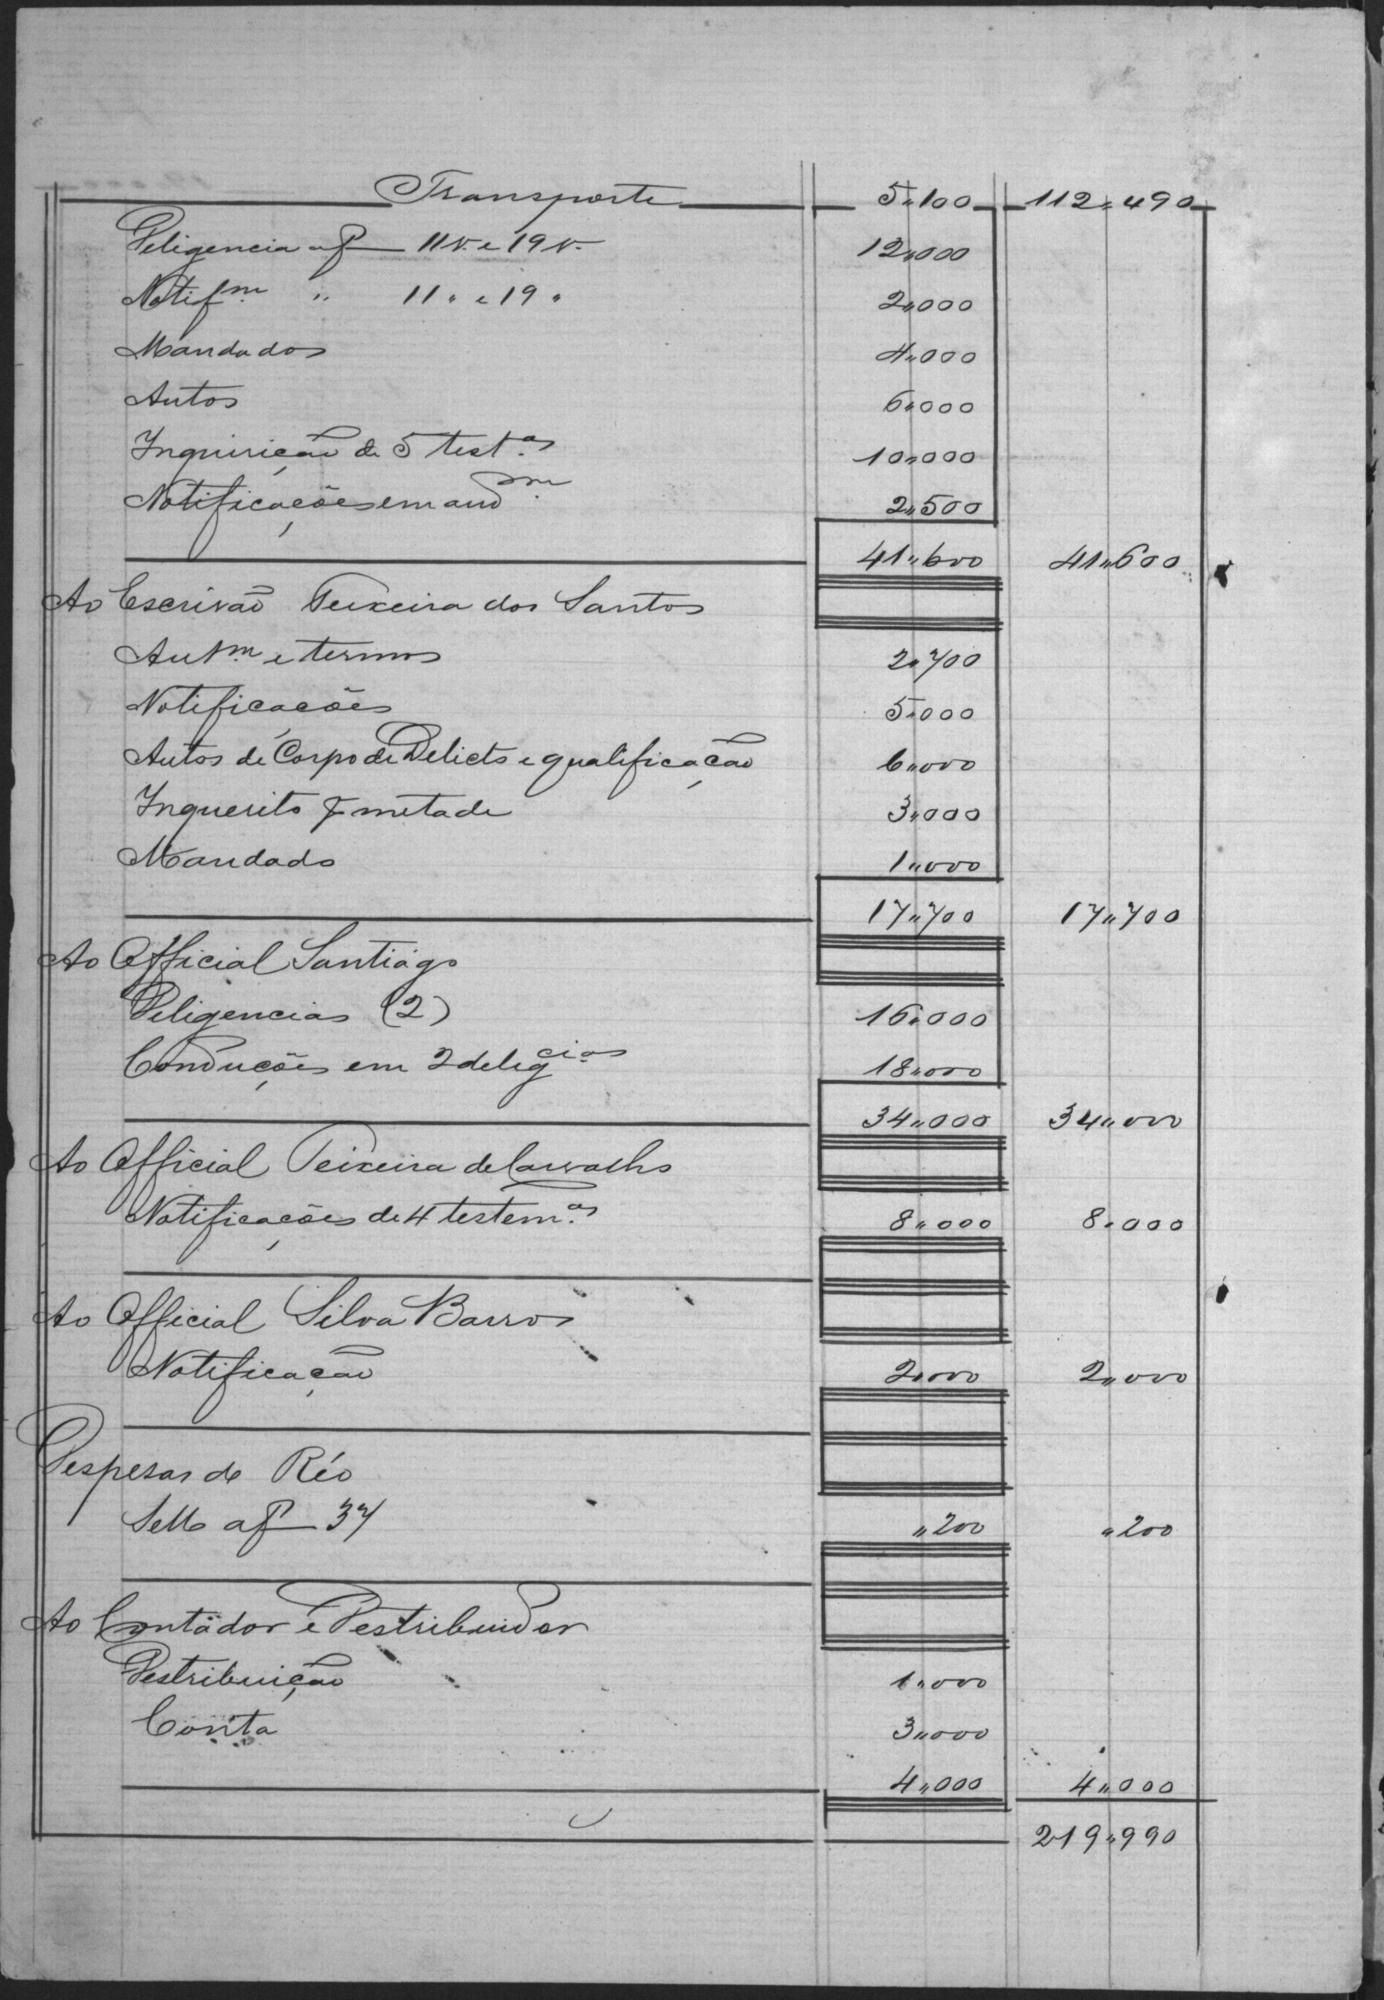 Transporte 5"100 112"490
Deligencia af 11v. e 19v. 12"000
Notif.m " 11 " e 19 " 2"000
Mandados 4"000
Autos 6"000
Inquirição de 5 test.as 10"000
Notificações em aud.m 2"500
41"600 41"600
Ao Escrivão Teixeira dos Santos
Aut.m e termos 2"700
Notificacões 5"000
Autos de Corpo de Delicto e qualificação 6"000
Inquerito metade 3"000
Mandado 1"000
17"700 17"700
Ao Official Santiágo
Deligencias (2) 16"000
Conduções em 2 delig.cias 18"000
34"000 34"000
Ao Official Teixeira de Carvalho
Notificações de 4 testem.as 8"000 8"000
Ao Official Silva Barros
Notificação 2"000 2"000
Despesas do Réo
Sello af 37 "200 "200
Ao Contador e Destribuidor
Destribuição 1"000
Conta 3"000
4"000 4"000
219"990